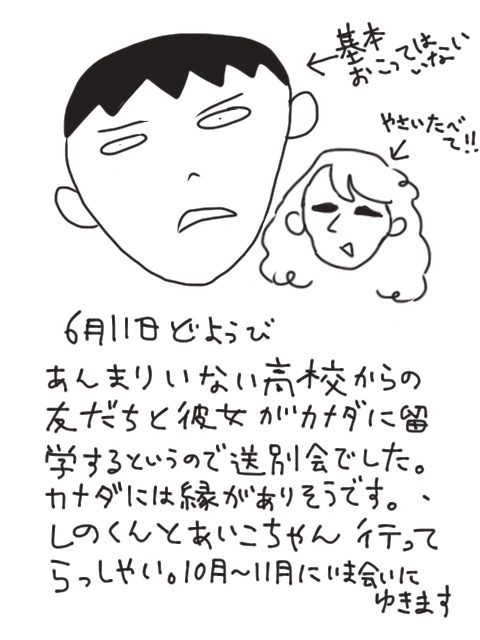 基本
おこってはいない
やさいたべて!!
6月11日どようび
あんまりいない高校からの
友だちと彼女がカナダに留
学するというので送別会でした。
カナダには縁がありそうです。、
しのくんとあいこちゃん行って
らっしゃい。10月〜11月にいま会いに
ゆきます